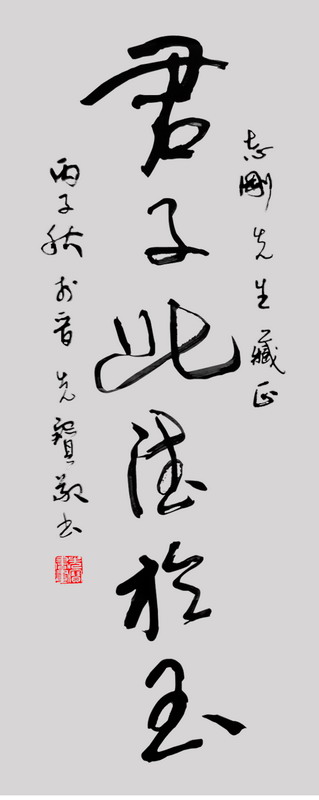 志剛先生藏正
君子比德於玉
丙子秋於晋先寶敬书